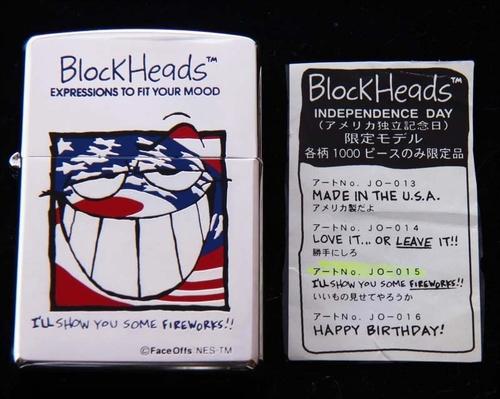 BlockHeads™
EXPRESSIONS TO FIT YOUR MOOD
I'LL SHOW YOU SOME FIREWORKS!!
©FaceOffs NES-TM
BlockHeads™
INDEPENDENCE DAY
(アメリカ独立記念日)
限定モデル
各柄1000ピースのみ限定品
アートNo. JO-013
MADE IN THE U.S.A.
アメリカ製だよ
アートNo. JO-014
LOVE IT... OR LEAVE IT!!
勝手にしろ
アートNo. JO-015
I'LL SHOW YOU SOME FIREWORKS!!
いいもの見せてやろうか
アートNo. JO-016
HAPPY BIRTHDAY!